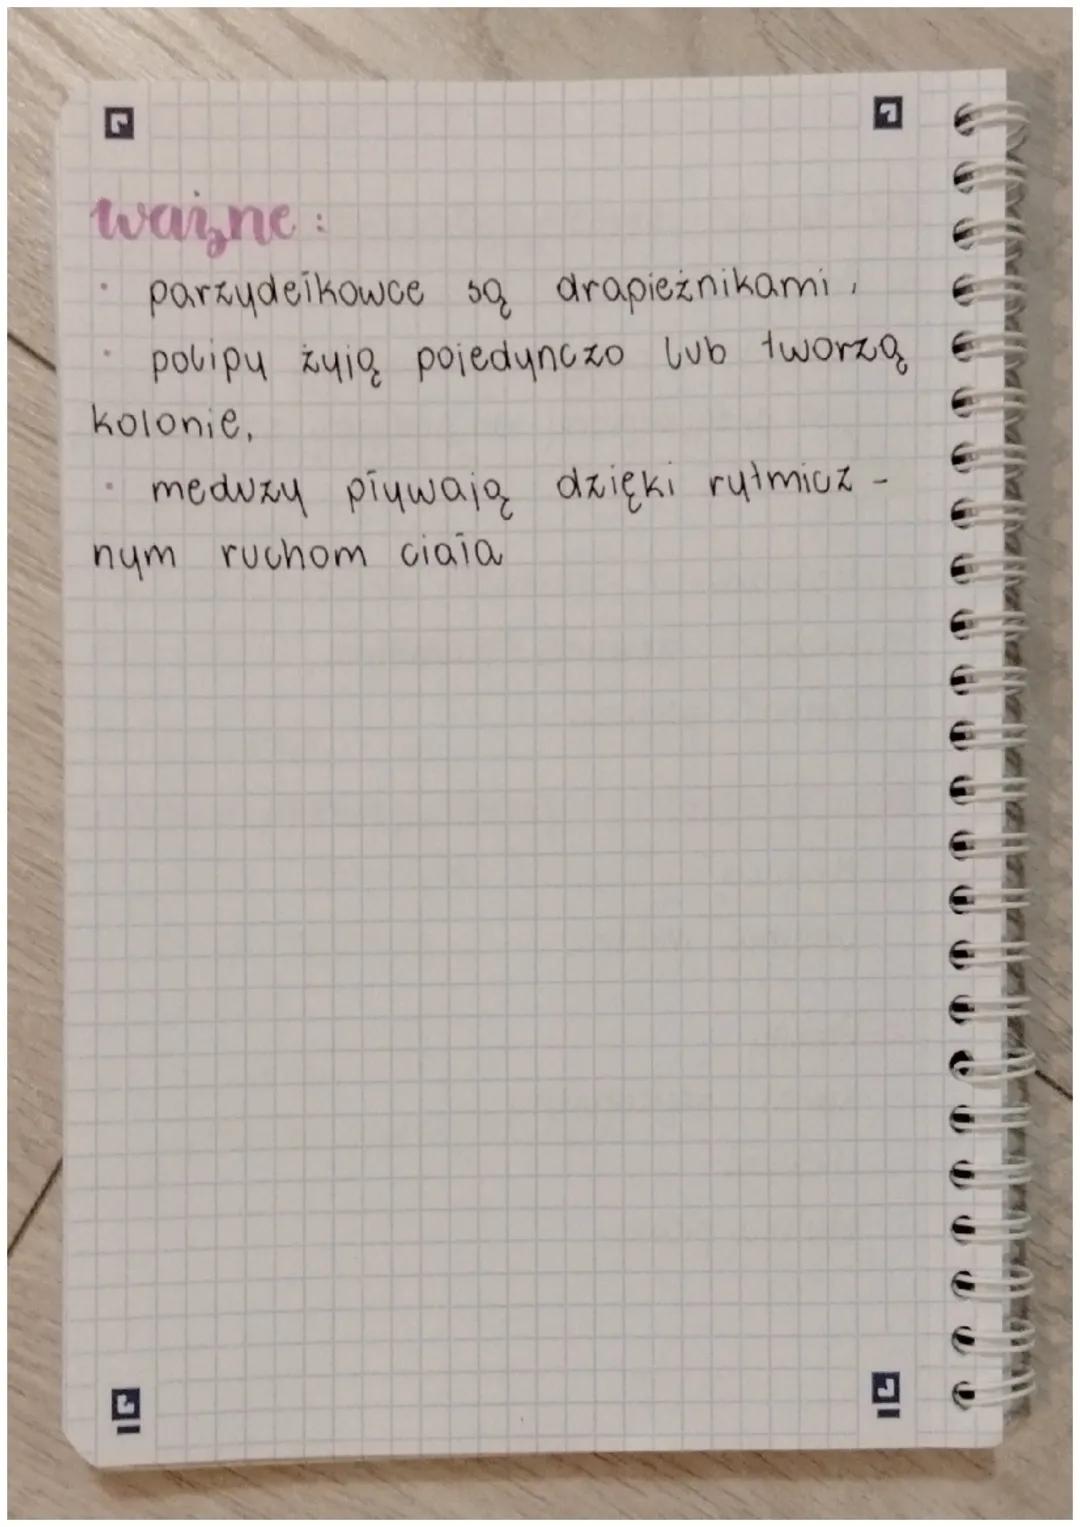 ważne:
· parzydełkowce są drapieżnikami,
· polipy żyją pojedynczo lub tworzą
kolonie,
· meduzy pływają dzięki rytmicz-
nym ruchom ciała